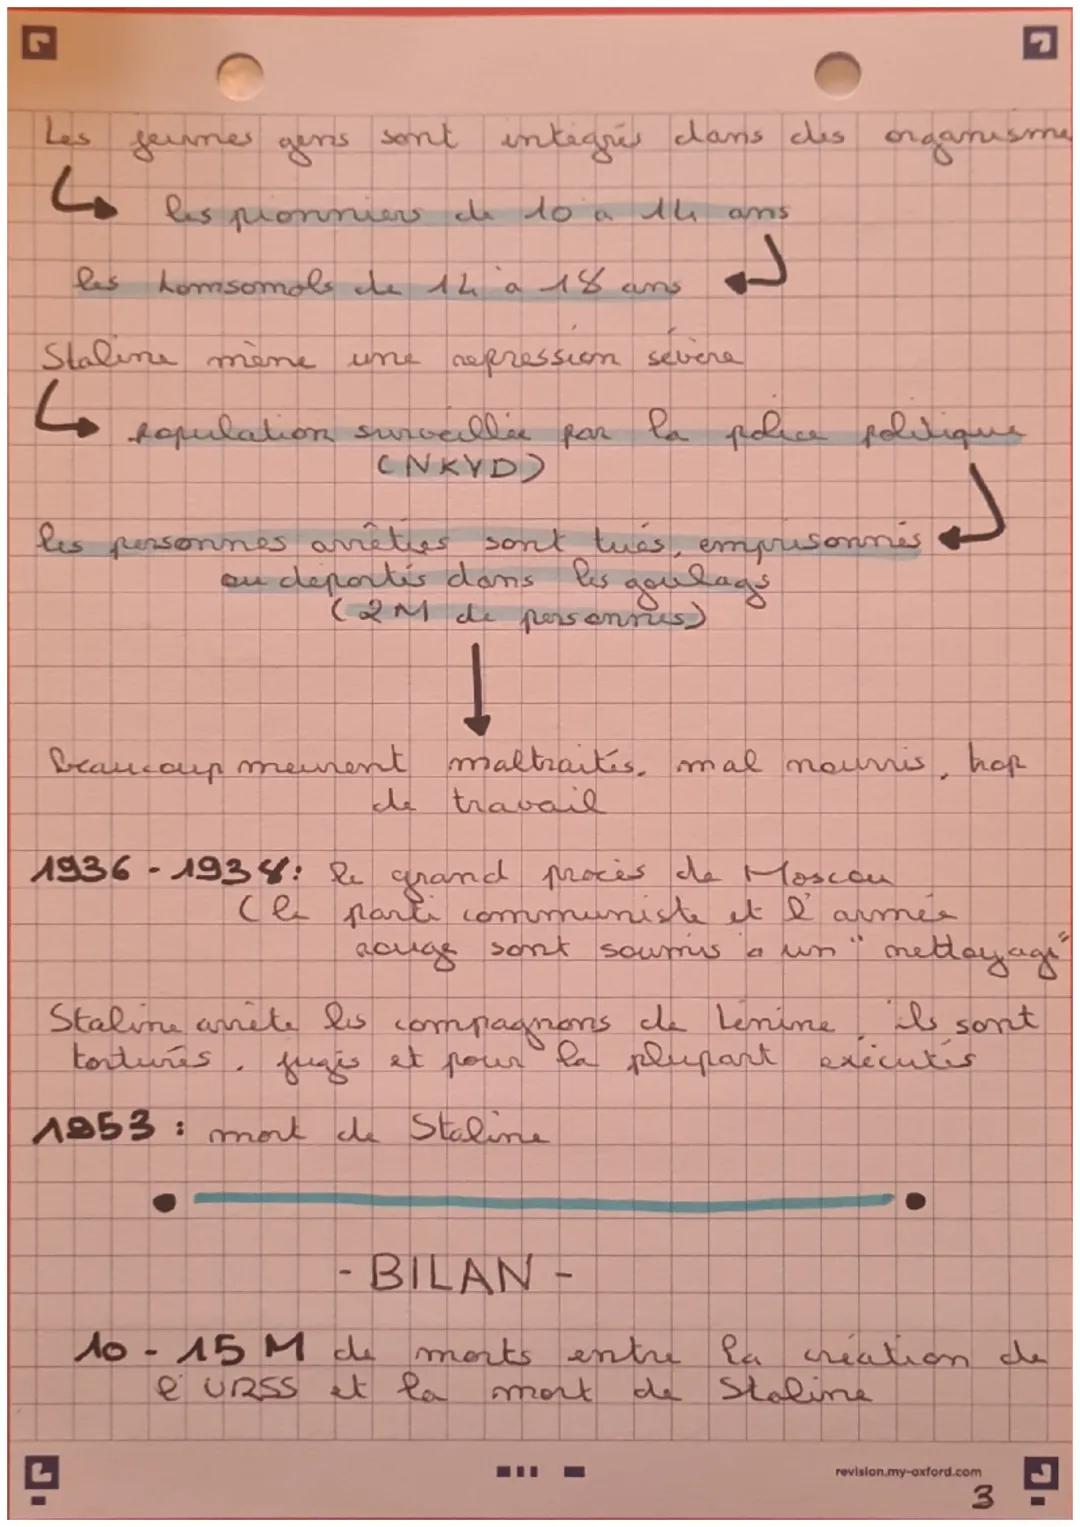 Les jeunes gens sont intégrés dans des organisme
les pionniers de 10 à 14 ans
les komsomols de 14 à 18 ans
Staline mène une repression sévère
population surveillée par la police politique
(NKVD)
les personnes arrêtées sont tués, emprisonnés
ou deportés dans les goulags
(2M de personnes)
Beaucoup meurent maltraités, mal nourris, trop
de travail
1936 - 1938: le grand procès de Moscou
(le parti communiste et l'armée
rouge sont soumis à un "nettoyage"
Staline arrête les compagnons de Lénine, ils sont
torturés, jugés et pour la plupart exécutés
1953 : mort de Staline
- BILAN -
10 - 15 M de morts entre la création de
l'URSS et la mort de Staline
revision.my-oxford.com
3